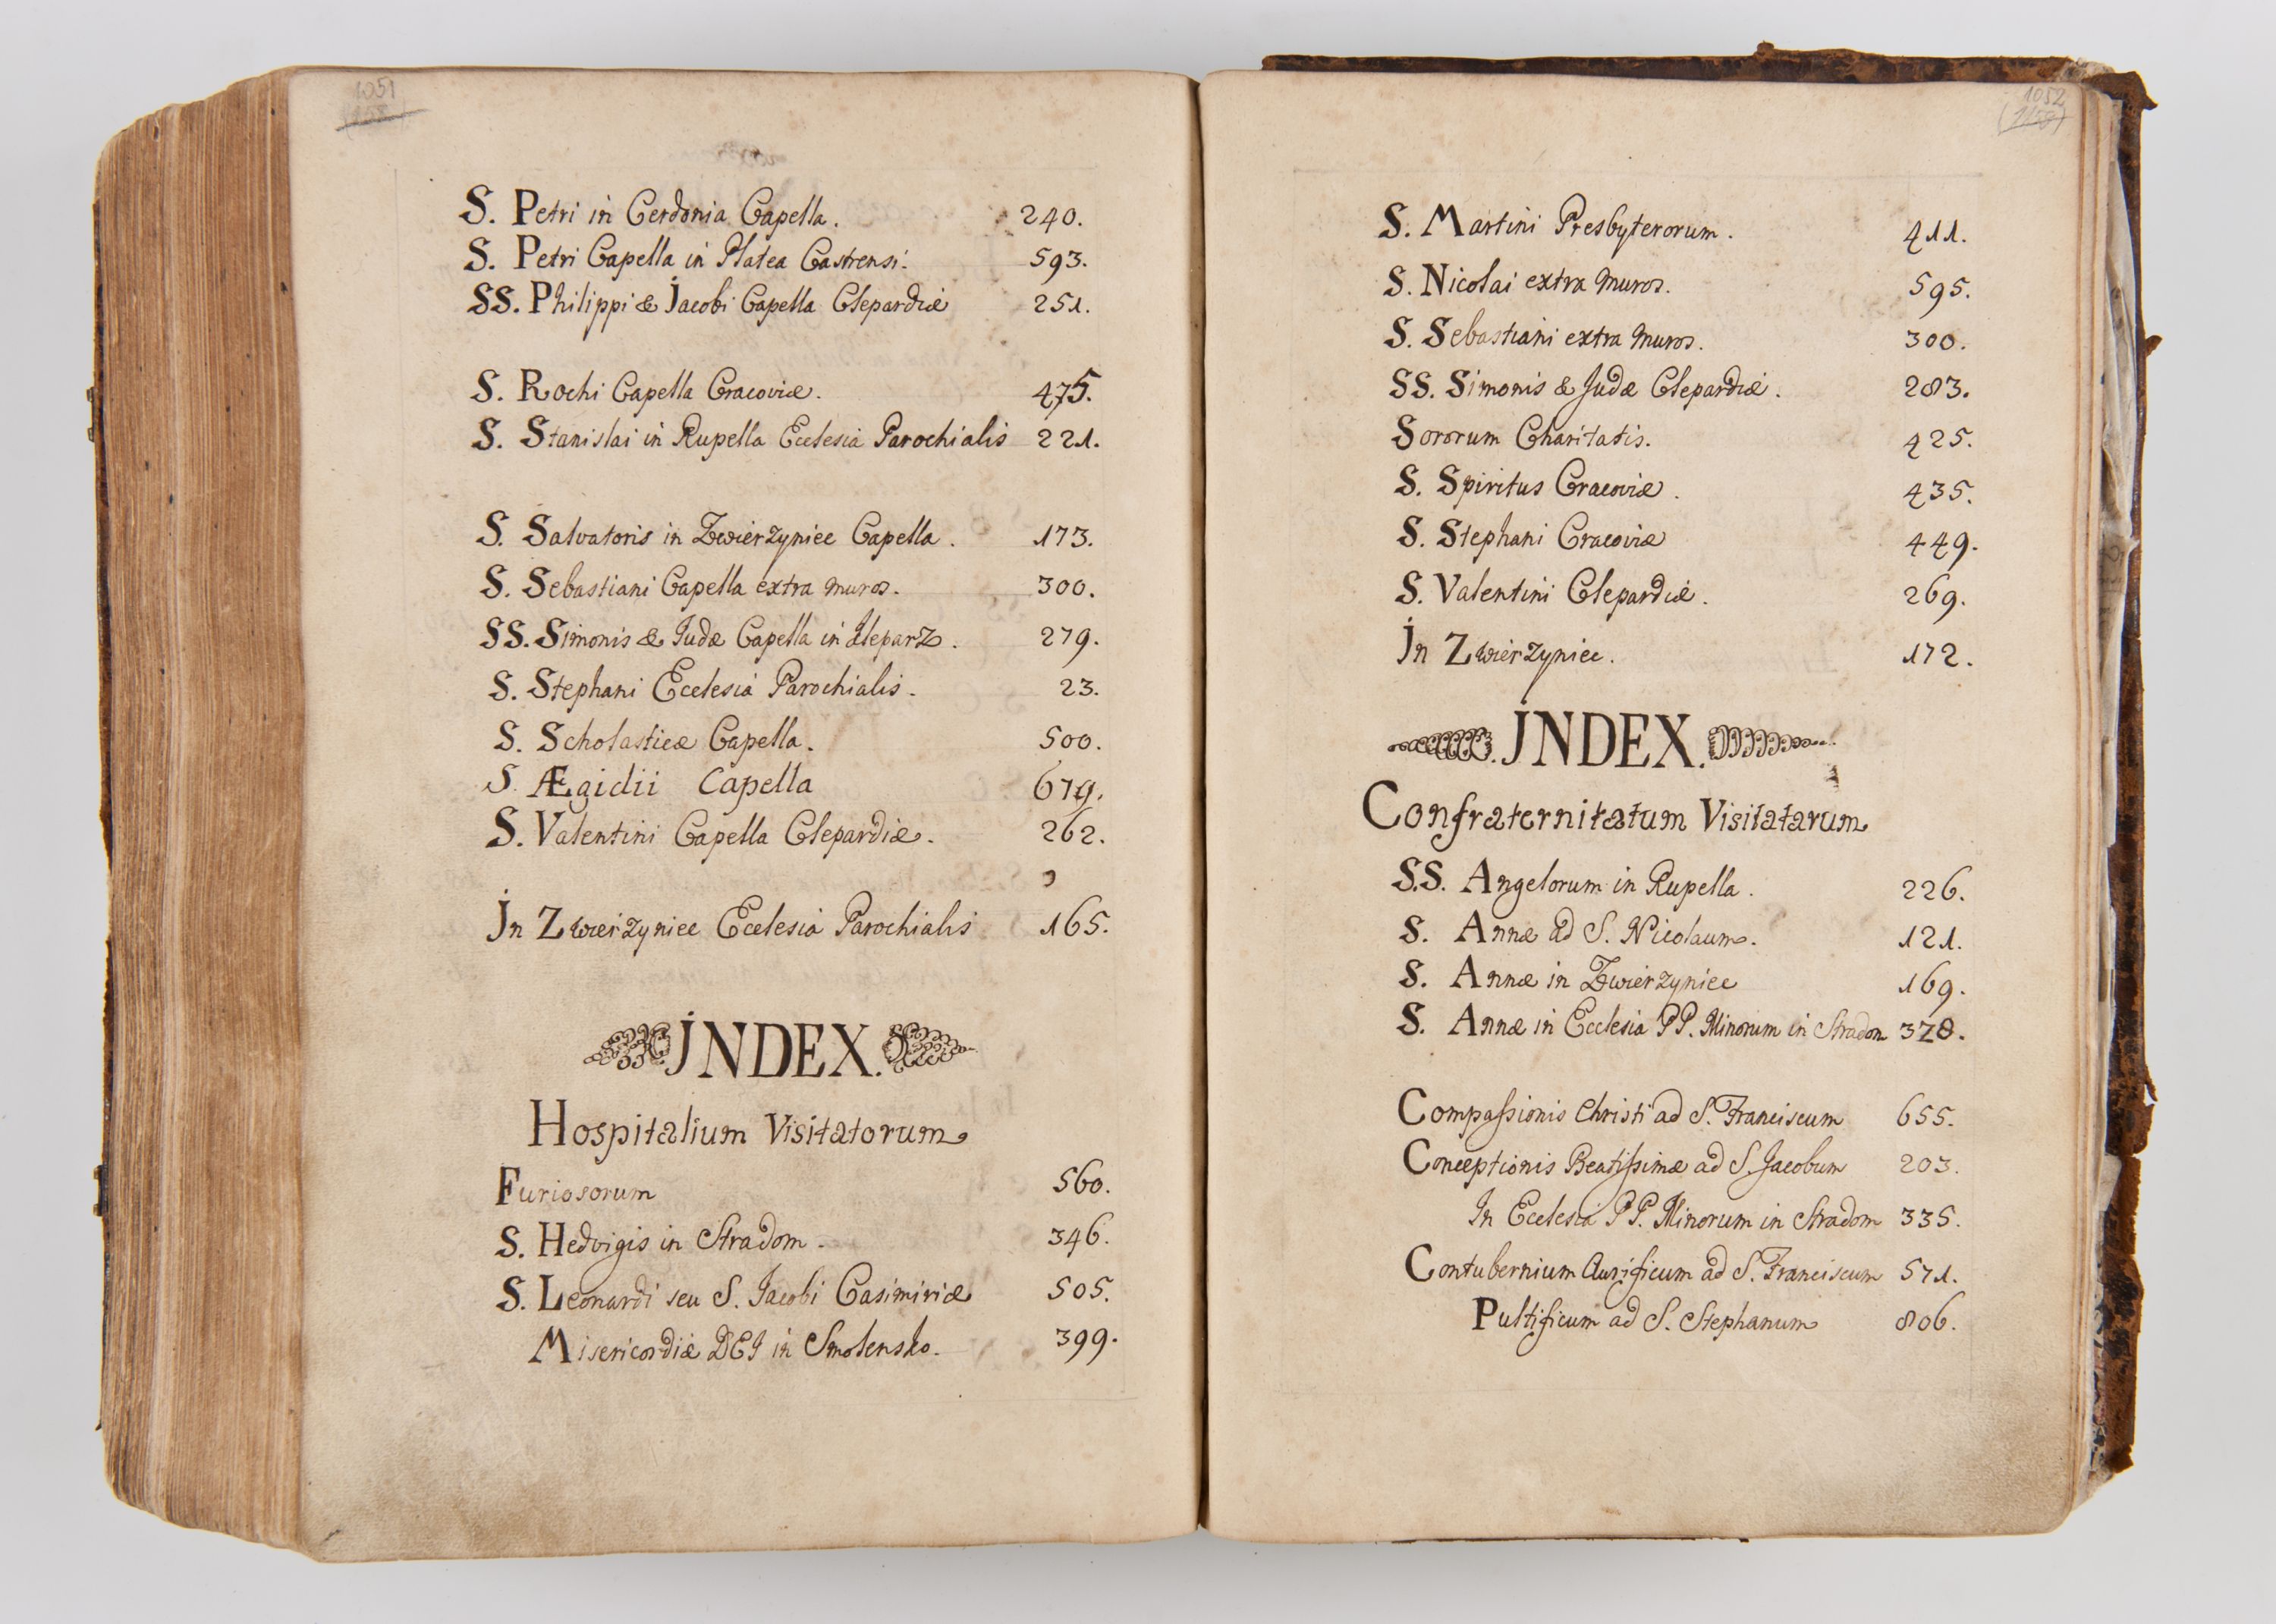 1051
S. Petri in Cerdonia Capella. 240.
S. Petri Capella in Platea Castrensi. 593.
SS. Philippi & Jacobi Capella Clepardiæ 251.
S. Rochi Capella Cracoviæ. 475.
S. Stanislai in Rupella Ecclesia Parochialis 221.
S. Salvatoris in Zwierzyniec Capella. 173.
S. Sebastiani Capella extra muros. 300.
SS. Simonis & Judæ Capella in Kleparz. 279.
S. Stephani Ecclesia Parochialis. 23.
S. Scholasticæ Capella. 500.
S. Ægidii Capella 679.
S. Valentini Capella Clepardiæ. 262.
Jn Zwierzyniec Ecclesia Parochialis 165.
JNDEX.
Hospitalium Visitatorum
Furiosorum 560.
S. Hedvigis in Stradom. 346.
S. Leonardi seu S. Jacobi Casimiriæ 505.
Misericordiæ DEI in Smolensko. 399.
1052
S. Martini Presbyterorum. 411.
S. Nicolai extra muros. 595.
S. Sebastiani extra muros. 300.
SS. Simonis & Judæ Clepardiæ. 283.
Sororum Charitatis. 425.
S. Spiritus Cracoviæ. 435.
S. Stephani Cracoviæ 449.
S. Valentini Clepardiæ. 269.
Jn Zwierzyniec. 172.
JNDEX.
Confraternitatum Visitatarum
S.S. Angelorum in Rupella. 226.
S. Annæ ad S. Nicolaum. 121.
S. Annæ in Zwierzyniec 169.
S. Annæ in Ecclesia PP. Minorum in Stradom 328.
Compaſsionis Christi ad S. Franciscum 655.
Conceptionis Beatiſsimæ ad S. Jacobum 203.
In Ecclesia PP. Minorum in Stradom 335.
Contubernium Aurificum ad S. Franciscum 571.
Pultificum ad S. Stephanum 806.